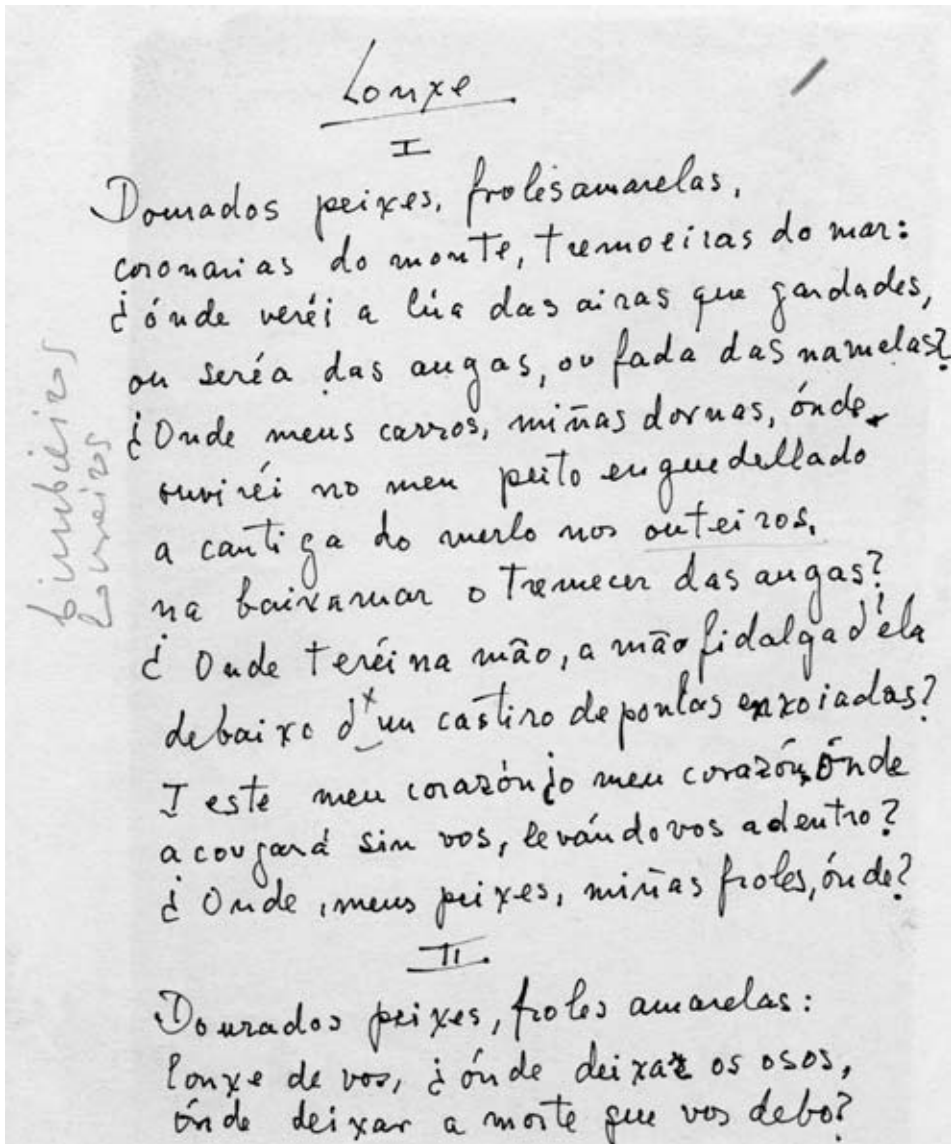 Lonxe
I
Dourados peixes, froles amarelas,
coronarias do monte, tremoeiras do mar:
¿ónde veréi a lúa das airas que gardades,
ou seréa das augas, ou fada das namelas?
¿Onde meus carros, miñas dornas, ónde
ouviréi no meu peito enguedellado
a cantiga do merlo nos outeiros,
na baixamar o tremecer das augas?
¿Onde teréi na mão, a mão fidalga d'ela
debaixo d'un castiro deponlas enxoiadas?
I este meu corazón ¿o meu corazón, ónde
acougará sin vos, levándovos adentro?
¿Onde, meus peixes, miñas froles, ónde?
II
Dourados peixes, froles amarelas:
lonxe de vos, ¿ónde deixar os osos,
ónde deixar a morte que vos debo?